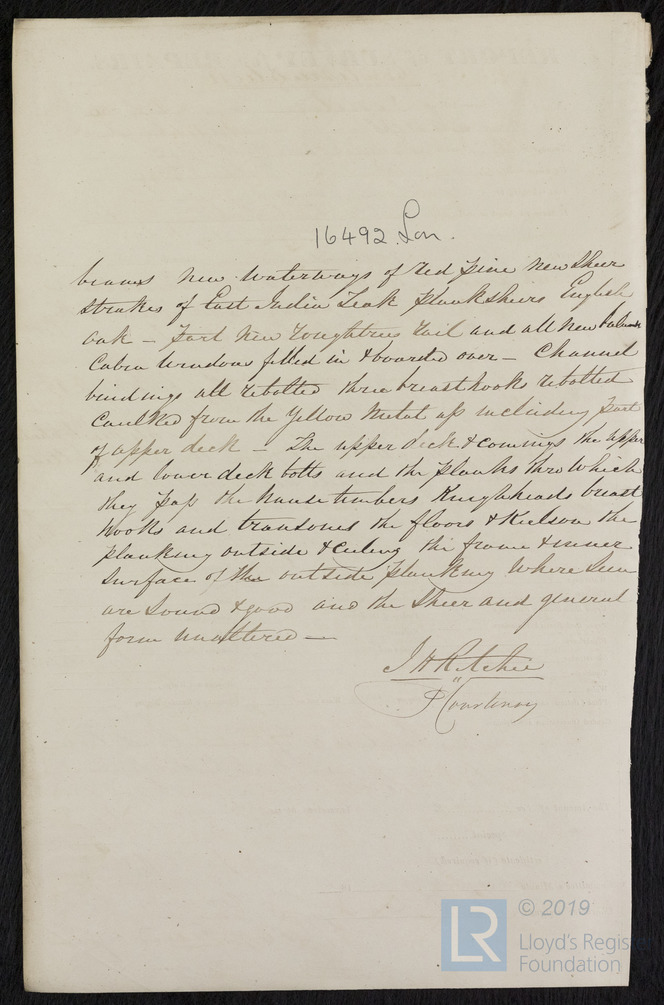 16492 Lon.
beams new waterways of red pine new sheer
strakes of East India Teak planksheers English
oak – part new roughtree rail and all new
Cabin windows filled in & boarded over – Channel
bindings all rebolted three breasthooks rebolted
caulked from the Yellow Metal up including part
of upper deck – The upper deck & comings the upper
and lower deck bolts and the planks thro which
they pass the hause timbers Knightheads breast
hooks and transoms the floors & Keelson the
planking outside & ceiling the frame & inner
surface of the outside planking where seen
are sound & good and the sheer and general
form unaltered –
J H Ritchie
" Courtenay
LR
© 2019
Lloyd's Register
Foundation